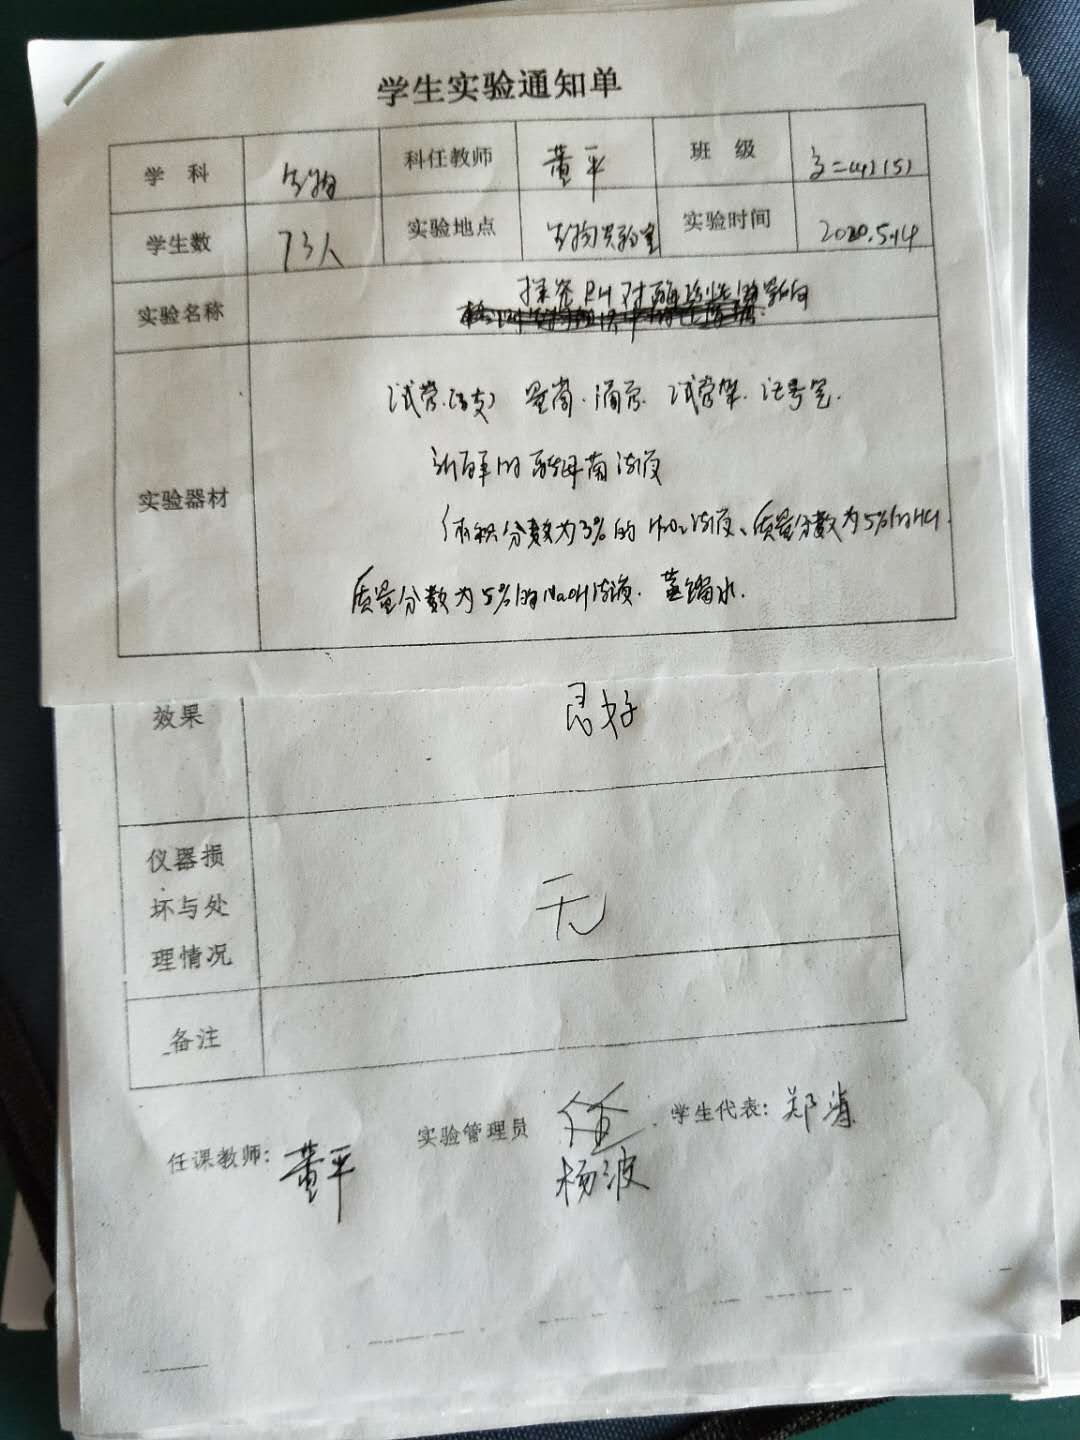 学生实验通知单
学 科 生物 科任教师 董平 班 级 高二(4)(5)
学生数 73人 实验地点 生物实验室 实验时间 2020.5.14
实验名称 探究PH对酶活性的影响
试管(5支) 量筒、滴管、试管架、记号笔.
新鲜的酵母菌溶液
实验器材
体积分数为3%的H₂O₂溶液、质量分数为5%的HCl.
质量分数为5%的NaOH溶液、蒸馏水.
效果 良好
仪器损
坏与处 无
理情况
备注
任课教师: 董平 实验管理员 学生代表: 郑
杨波